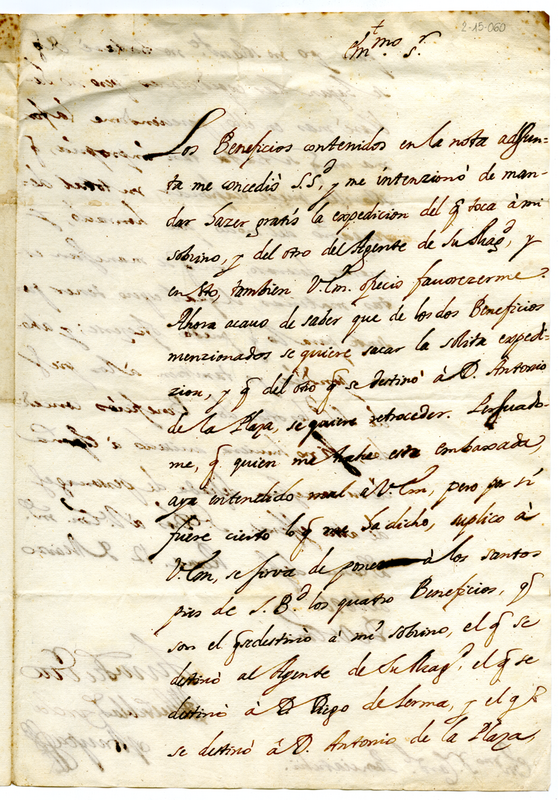 2-15-060
Em.mo S.r
Los Beneficios contenidos en la nota adjun-
ta me concedió S.S.d, y me intenzionó de man-
dar hazer gratis la expedicion del q toca à mi
sobrino, y del otro del Agente de Su Mag.d, y
en esto, tambien V.Em. ofreció favorezerme.
Ahora acavo de saber que de los dos Beneficios
menzionados se quiere sacar la solita expedi-
zion, y q del otro q se destinó à D. Antonio
de la Plaza, se quiere retroceder. Persuado-
me, q quien me trahe esta embaxada,
aya entendido mal à V.Em, pero por si
fuere cierto lo q me ha dicho, suplico à
V.Em, se sirva de poner à los santos
pies de S.B.d los quatro Beneficios, q
son el q se destinó à mi sobrino, el q se
destinó al Agente de Su Mag.d, el q se
destinó à D. Diego de Lerma, y el q
se destinó à D. Antonio de la Plaza,